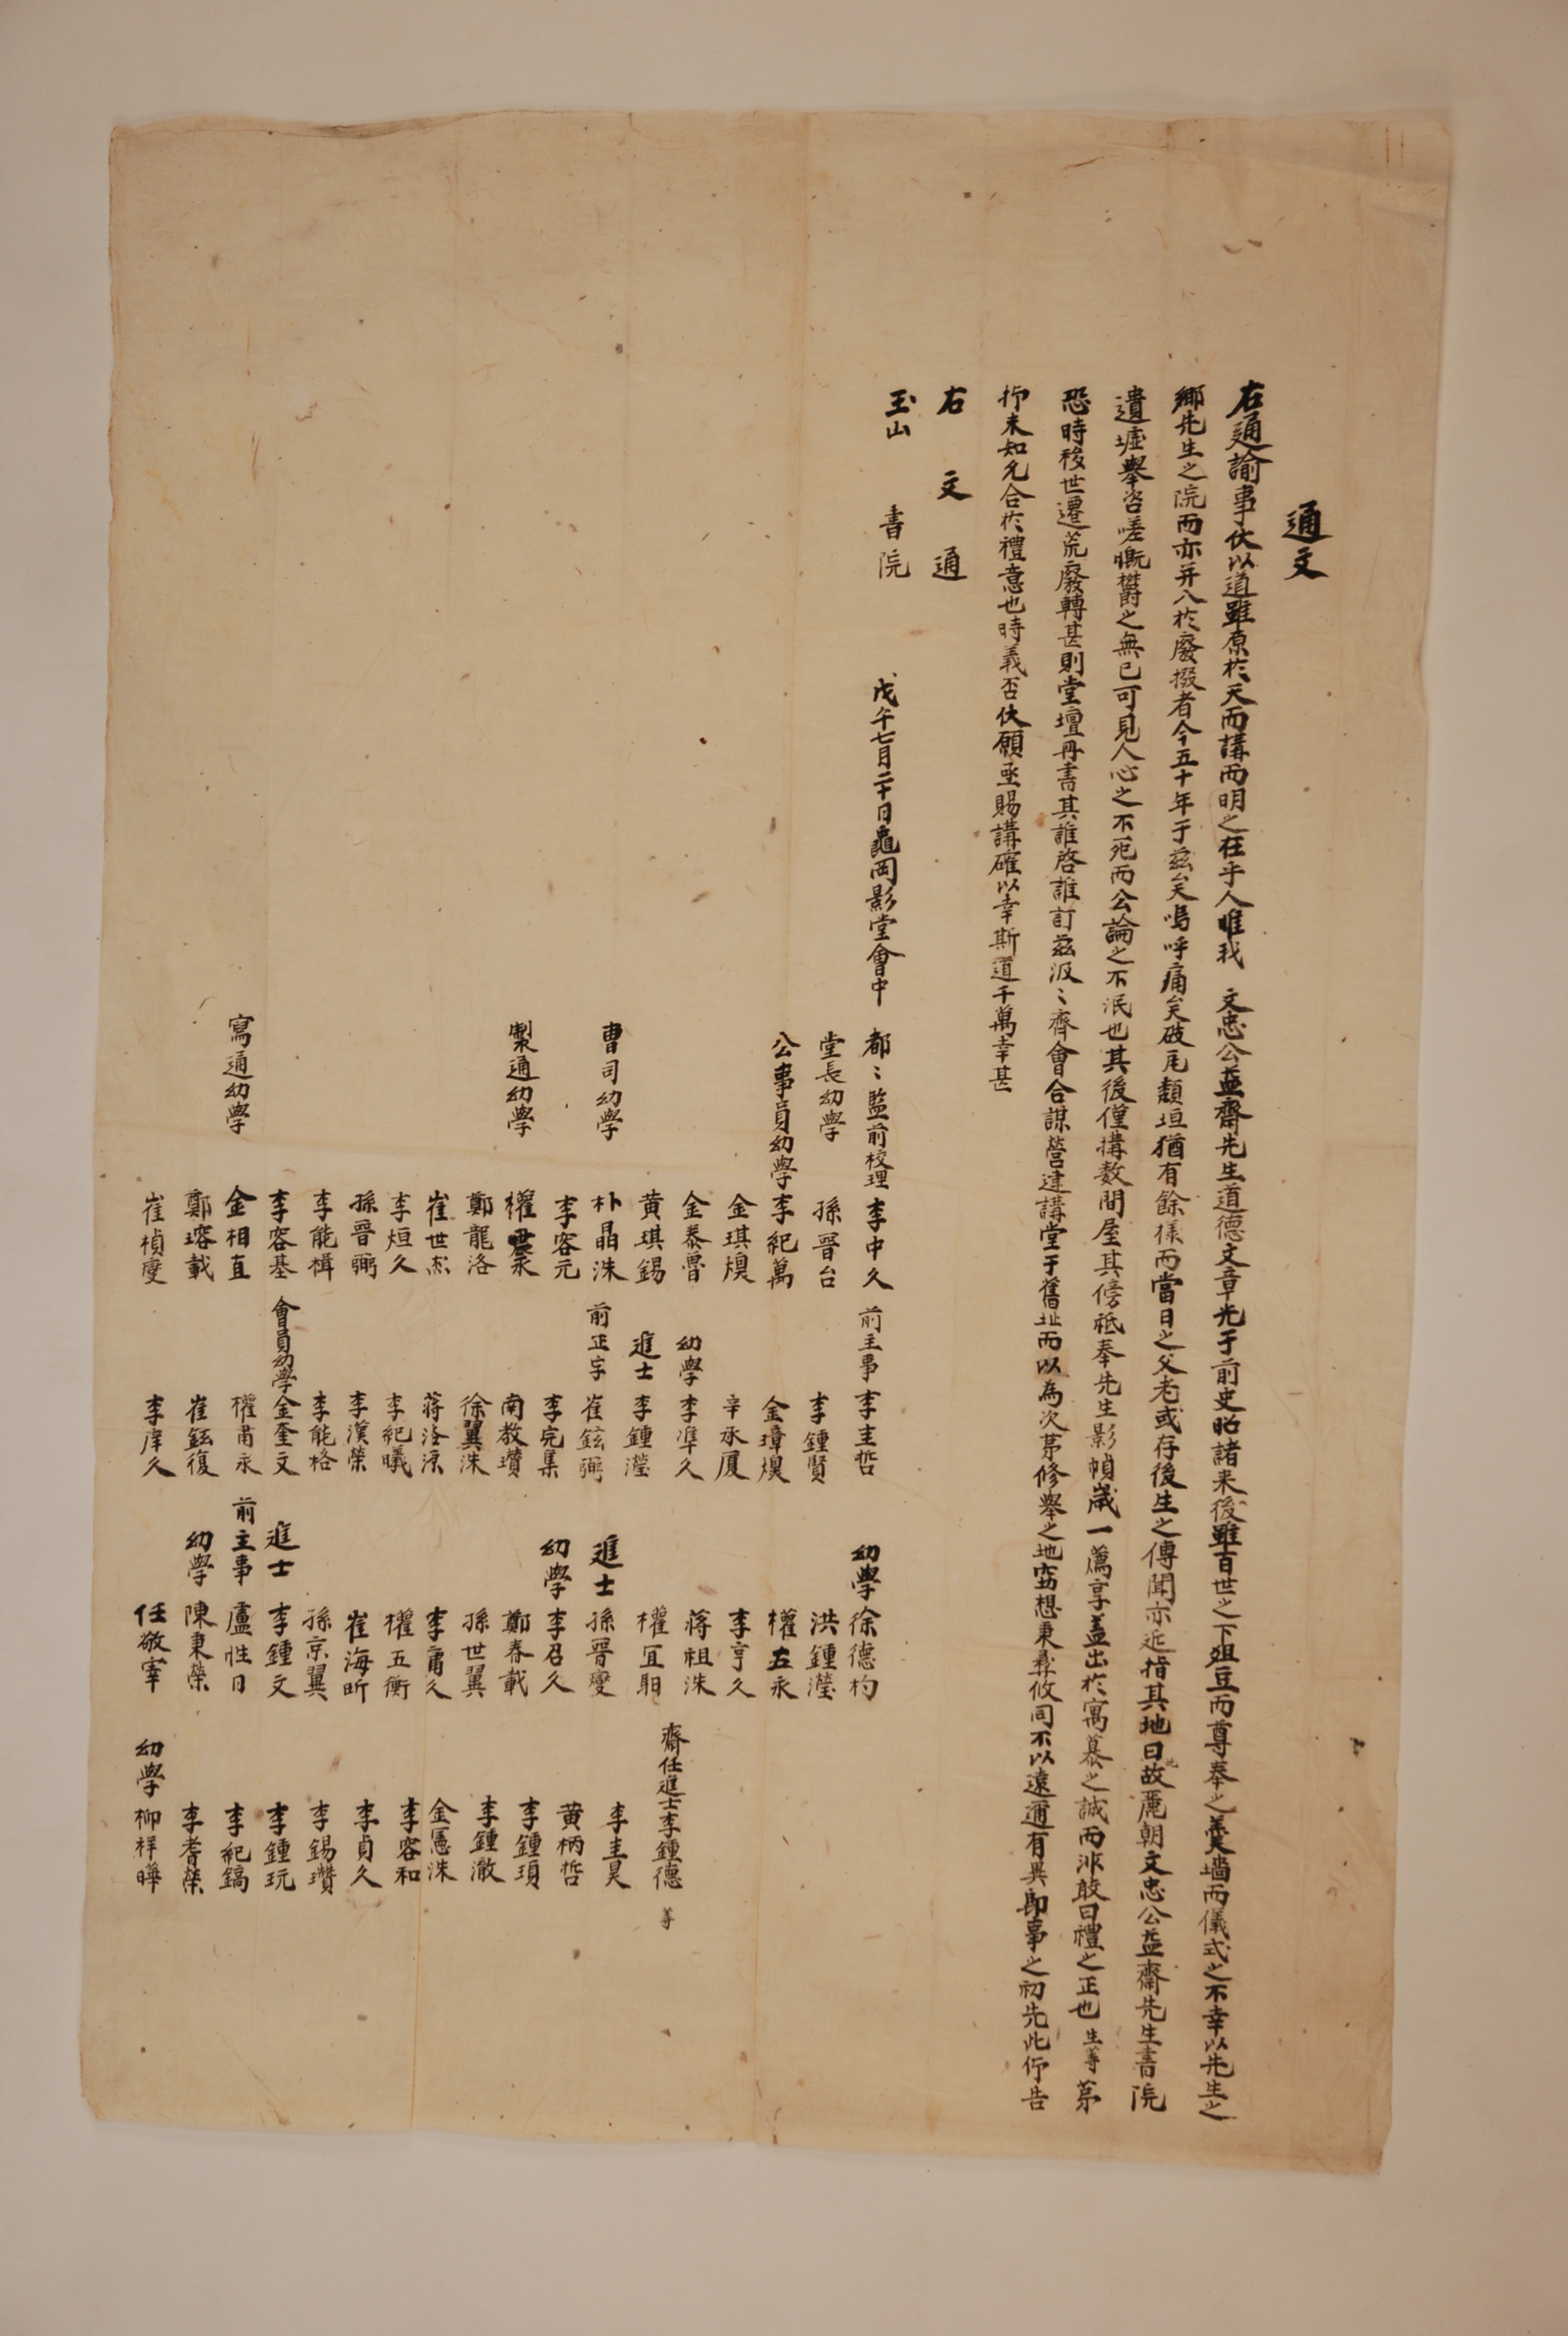 通文
右通諭事伏以道雖原於天而講而明之在乎人惟我 文忠公益齋先生道德文章光于前史昭諸來後雖百世之下俎豆而尊奉之羹墻而儀式之不幸以先生之
鄉先生之院而亦并入於廢撥者今五十年于玆矣嗚呼痛矣破瓦頹垣猶有餘樣而當日之父老或存後生之傳聞亦近指其地曰此故麗朝文忠公益齋先生書院
遺墟擧咨嗟慨欝之無已可見人心之不死而公論之不泯也其後僅搆数間屋其傍祗奉先生影幀歲一薦享盖出於寓慕之誠而非敢曰禮之正也生等苐
恐時移世遷荒廢轉甚則堂壇再書其誰啓誰訂玆汲〻齊會合謀營建講堂于舊址而以為次苐修擧之地窃想秉彛攸同不以遠邇有異卽事之初先此仰告
抑未知允合於禮意也時義否伏願亟賜講確以幸斯道千萬幸甚
右文通
玉山書院
戊午七月二十日龜岡影堂會中
都〻監前校理 李中久 前主事 李圭哲 幼學 徐德杓
堂長幼學 孫晉台 李鍾賢 洪鍾瀅
公事員幼學 李紀萬 金璋煥 權五永
金琪煥 辛承厦 李亨久
金泰魯 幼學 李準久 蔣祖洙 齋任進士 李鍾德 等
黄琪錫 進士 李鍾瀅 權宜
曹司幼學 朴晶洙 前正字 崔鉉弼 進士 孫晉燮 李圭昊
李容元 李完集 幼學 李召久 黄柄哲
製通幼學 權 南教瓚 鄭春載 李鍾頊
鄭龍洛 徐翼洙 孫世翼 李鍾澈
崔世杰 蔣洛 李庸久 金憲洙
李烜久 李紀曦 權五衡 李容和
孫晉弼 李漢榮 崔海昕 李貞久
李能楫 李能格 孫京翼 李錫瓚
李容基 會員幼學 金奎文 進士 李鍾文 李鍾玩
寫通幼學 金相直 權甫永 前主事 盧性日 李紀鎬
鄭瑢載 崔鉉復 幼學 陳秉榮 李耆榮
崔楨燮 李庠久 任敬宰 幼學 柳祥曄